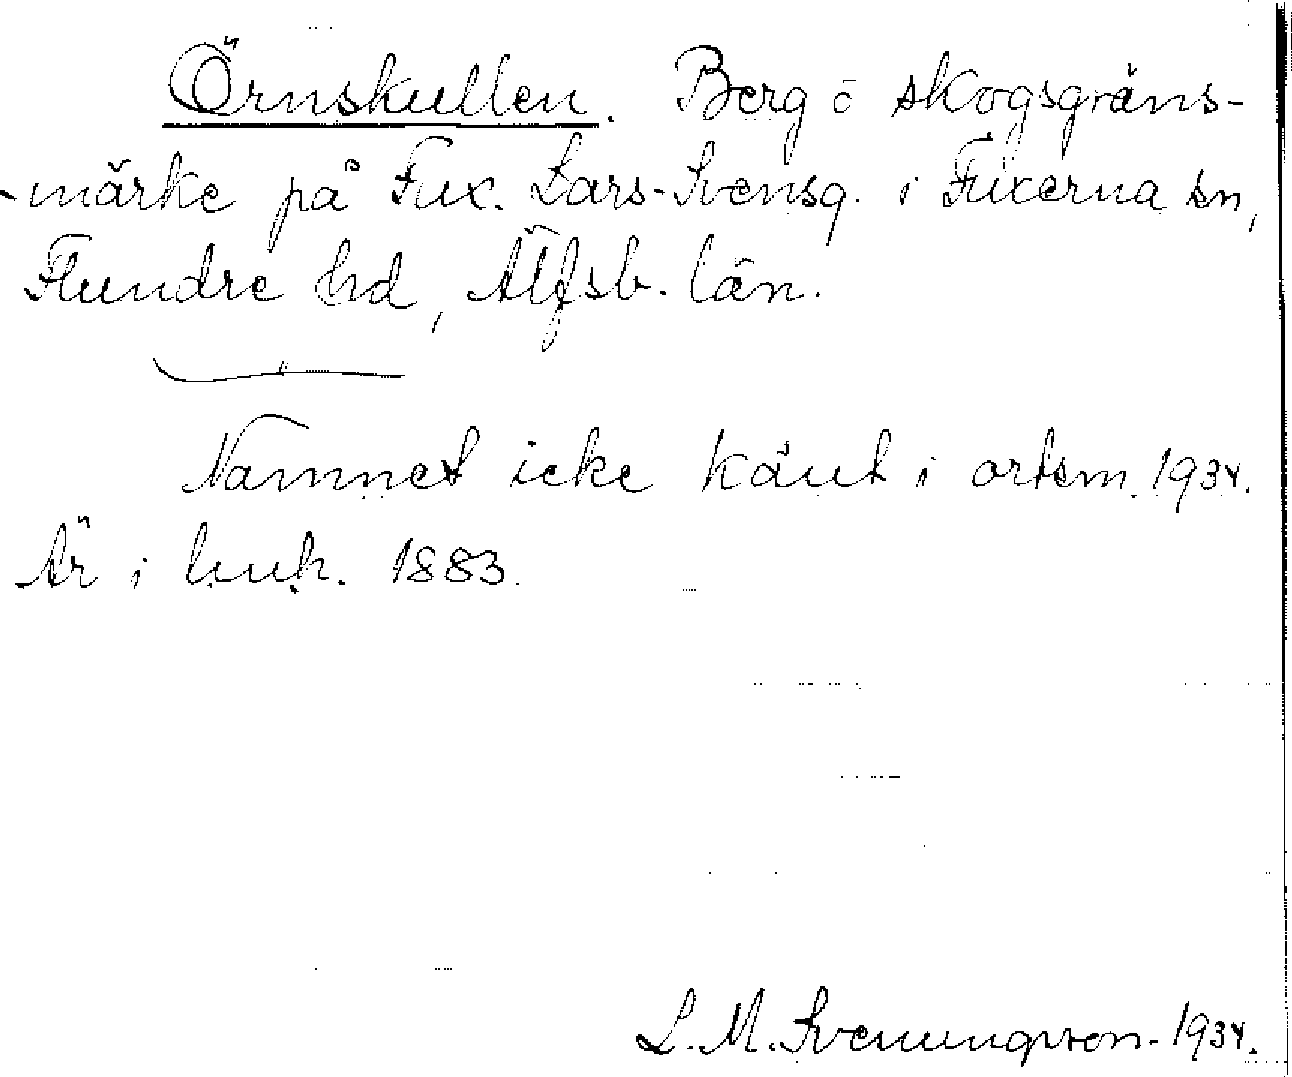 Örnskullen. Berg o skogsgräns-
-märke på Fux. Lars-Svensg. i Fuxerna sn,
Flundre hd, Älfsb. län.
Namnet icke känt i ortsm. 1934.
Är i bruk. 1883.
L. M. Svenungsson. 1934.